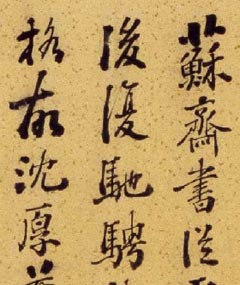 蘇齋書從
後復馳騁
格故沈厚